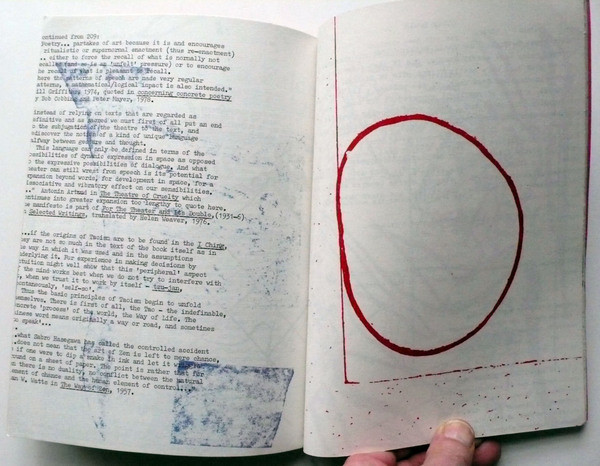 ontinued from 209:
Poetry... partakes of art because it is and encourages
ritualistic or supernormal enactment (thus re-enactment)
.. either to force the recall of what is normally not
recalled (and so is an 'unfelt' pressure) or to encourage
he recall of what is pleasant to recall.
here the patterns of speech art made very regular
atterns, a mathematical/logical impact is also intended."
ill Griffiths, 1974, quoted in concerning concrete poetry
y Bob Cobbing and Peter Mayer, 1978.
instead of relying on texts that are regarded as
efinitive and as sacred we must first of all put an end
o the subjugation of the theatre to the text, and
ediscover the notion of a kind of unique language
alfway between gesture and thought.
This language can only be defined in terms of the
ossibilities of dynamic expression in space as opposed
o the expressive possibilities of dialogue. And what
heater can still wrest from speech is its potential for
xpansion beyond words, for development in space, for a
issociative and vibratory effect on our sensibilities.
.." Antonin Artaud in The Theatre of Cruelty which
ontinues into greater expansion too lengthy to quote here.
he manifesto is part of For The Theater and its Double, (1931-6)
n Selected Writings, translated by Helen Weaver, 1976.
...if the origins of Taoism are to be found in the I Ching,
hey are not so much in the text of the book itself as in
he way in which it was used and in the assumptions
nderlying it. For experience in making decisions by
ntuition might well show that this 'peripheral' aspect
f the mind works best when we do not try to interfere with
, when we trust it to work by itself - tzu-jan,
ontaneously, 'self-so'.
Thus the basic principles of Taoism begin to unfold
emselves. There is first of all, the Tao - the indefinable,
ncrete 'process' of the world, the Way of Life. The
inese word means originally a way or road, and sometimes
o speak'...
.what Sabro Hasegawa has called the controlled accident
.does not mean that the art of Zen is left to mere chance,
if one were to dip a snake in ink and let it
ound on a sheet of paper. The point is rather that for
en there is no duality, no conflict between the natural
ement of chance and the human element of control...
an W. Watts in The Way of Zen, 1957.